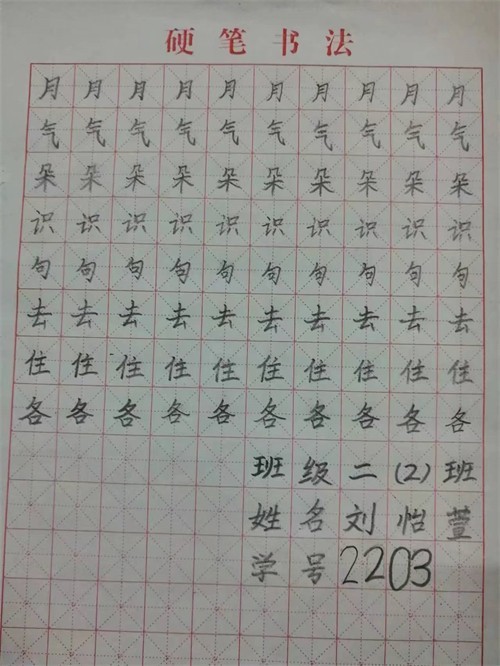 硬笔书法
月月月月月月月月月月
气气气气气气气气气气
朵朵朵朵朵朵朵朵朵朵
识识识识识识识识识识
句句句句句句句句句句
去去去去去去去去去去
住住住住住住住住住住
各各各各各各各各各各
班级二(2)班
姓名刘怡萱
学号2203